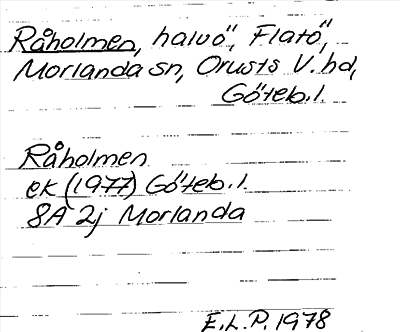 Råholmen, halvö, Flatö,
Morlanda sn, Orusts V. hd,
Göteb.l.
Råholmen
ek (1977) Göteb.l.
8A 2j Morlanda
E.L.P. 1978